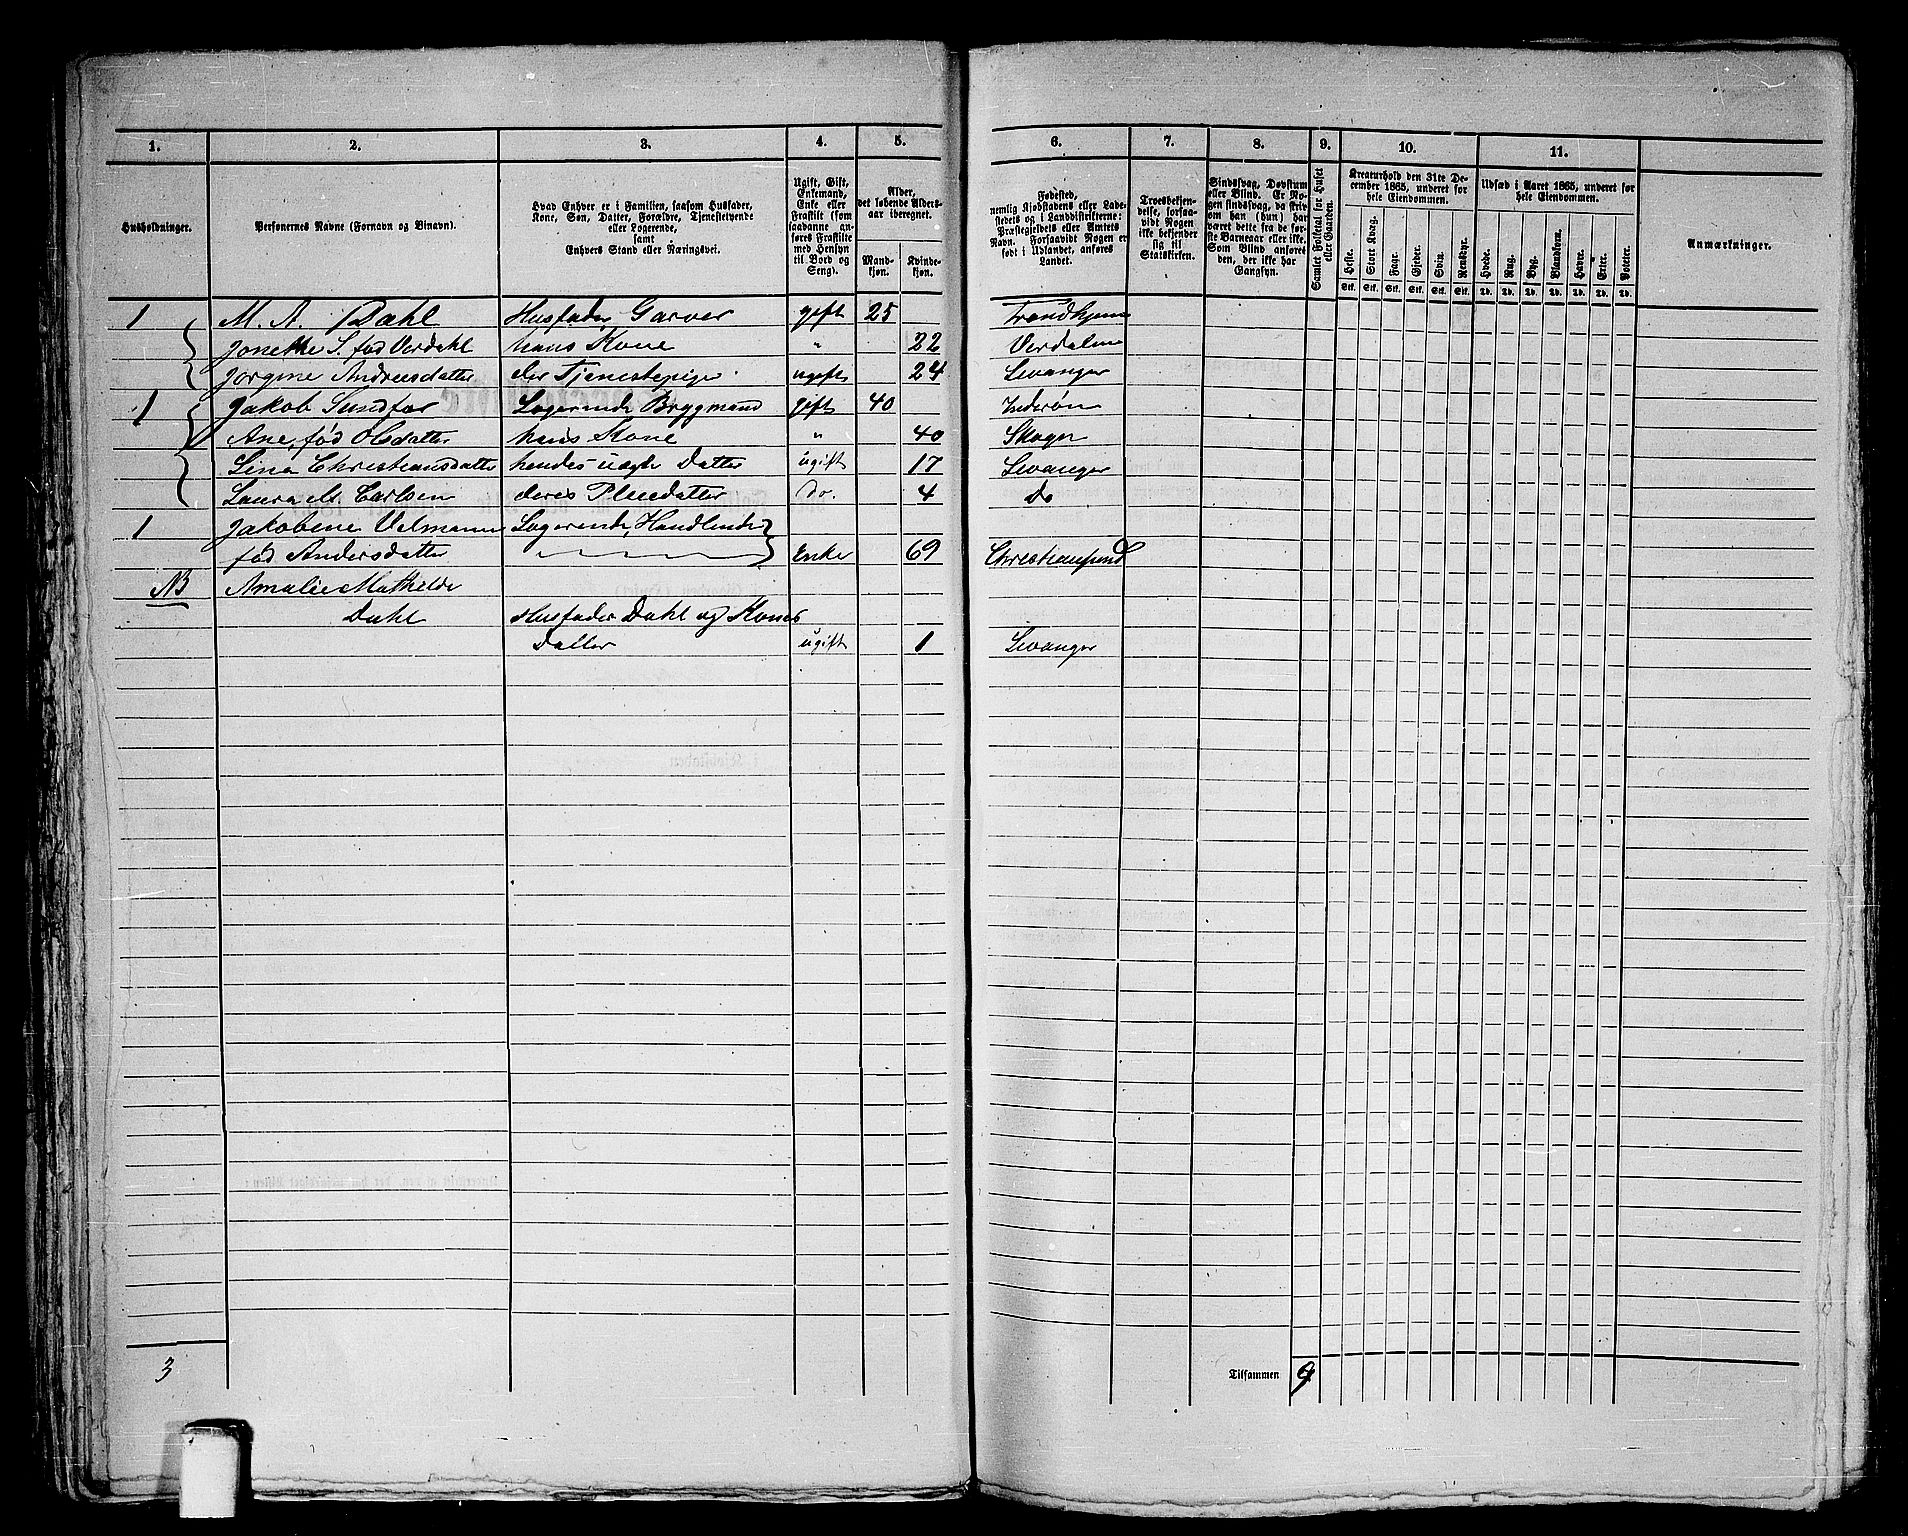 1. 2. 3. 4. 5. 6. 7. 8. 9. 10. 11.
Husholdninger.
Personernes Navne (Fornavn og Tilnavn).
Hvad Enhver er i Familien, saasom Husfader,
Kone, Søn, Datter, Forældre, Tjenestetyende
eller Logerende,
samt
Enhvers Stand eller Næringsvei.
Ugift, Gift,
Enkemand,
Enke eller
Fraskilt (som
saadanne an-
føres Fraskilte
med Hensyn
til Bord og
Seng).
Alder,
det løbende Alders-
aar iberegnet.
Mand-
kjøn.
Kvinde-
kjøn.
Fødested,
nemlig Kjøbstadens eller Lade-
stedets og i Landdistrikterne:
Præstegjeldets eller Amtets
Navn. Forsaavidt Nogen er
født i Udlandet, anføres
Landet.
Troesbekjen-
delse, forsaa-
vidt Nogen
ikke bekjender
sig til
Statskirken.
Sindssvag, Døvstum
eller Blind. Er No-
gen sindssvag, da skriv
om han (hun) har
været dette fra de før-
ste Barneaar eller ikke.
Som Blind anføres
den, der ikke har
Gangsyn.
Samlet Folketal for Huset
eller Gaarden.
Kreaturhold den 31te De-
cember 1865, underet for
hele Eiendommen.
Heste. Stort Kvæg. Faar. Gjeder. Svin. Rensdyr.
Stk. Stk. Stk. Stk. Stk. Stk.
Udsæd i Aaret 1865, underet for
hele Eiendommen.
Hvede. Rug. Byg. Blandkorn. Havre. Erter. Poteter.
Td. Td. Td. Td. Td. Td. Td.
Anmærkninger.
1 M. A. Dahl Husfader, Garver gift 25 Trondhjem
Jonette S. fød Verdahl hans Kone " 22 Verdalen
Jørgine Andreesdatter der Tjenestepige ugift 24 Levanger
1 Jakob Sundfær Logerende Brygmand gift 40 Inderøn
Ane, fød Olsdatter hans Kone " 40 Skogn
Lina Christiansdatter hendes uægte Datter ugift 17 Levanger
Laura M. Carlsen deres Pleiedatter do. 4 do
1 Jakobene Velmann Logerende, Handlende
fød Andersdatter Enke 69 Christiansund
NB Amalie Mathilde
Dahl Husfader Dahl og Kones
Datter ugift 1 Levanger
3 Tilsammen 9